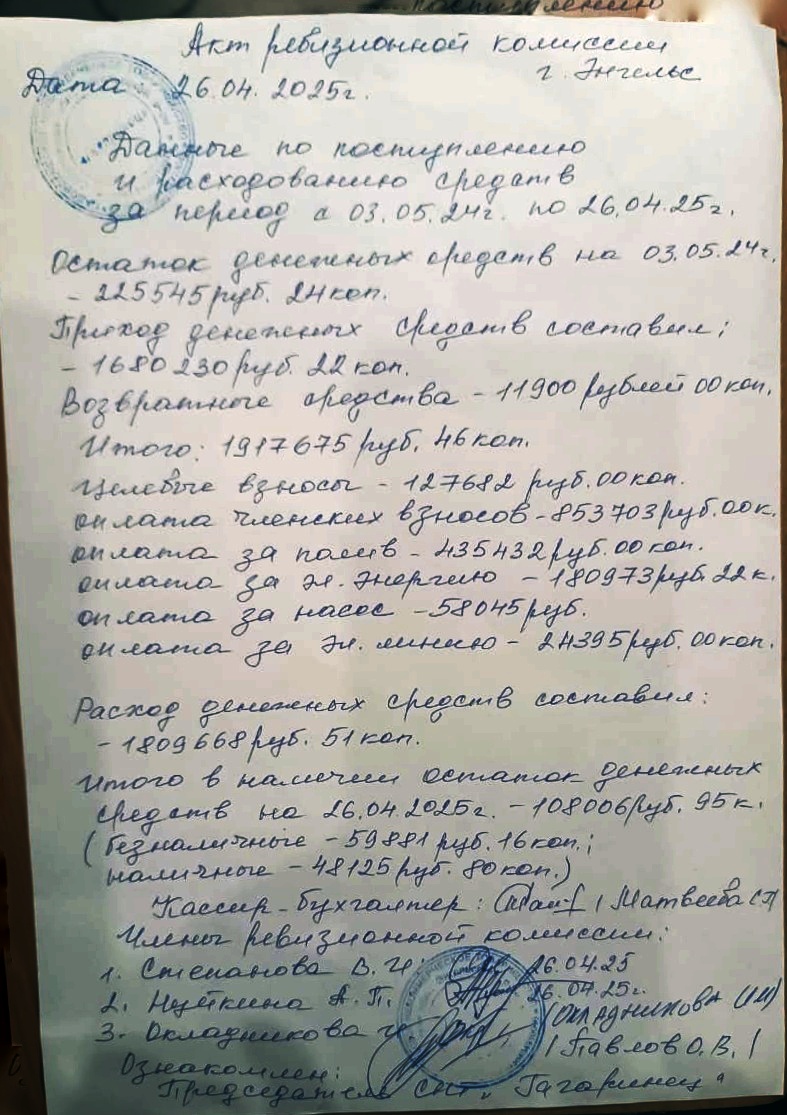 Акт ревизионной комиссии
г. Энгельс
Дата 26.04.2025г.
Данные по поступлению
и расходованию средств
за период с 03.05.24г. по 26.04.25г.
Остаток денежных средств на 03.05.24г.
- 225545 руб. 24 коп.
Приход денежных средств составил:
- 1680230 руб. 22 коп.
Возвратные средства - 11900 рублей 00 коп.
Итого: 1917675 руб. 46 коп.
Целевые взносы - 127682 руб. 00 коп.
оплата членских взносов - 853703 руб. 00 к.
оплата за полив - 435432 руб. 00 коп.
оплата за эл. энергию - 180973 руб 22 к.
оплата за насос - 58045 руб.
оплата за эл. линию - 24395 руб. 00 коп.
Расход денежных средств составил:
- 1809668 руб. 51 коп.
Итого в наличии остаток денежных
средств на 26.04.2025г. - 108006 руб. 95 к.
(безналичные - 59881 руб. 16 коп.;
наличные - 48125 руб. 80 коп.)
Кассир-бухгалтер: / Матвеева
Члены ревизионной комиссии:
1. Степанова В. И. 26.04.25
2. Нуйкина А. П. 26.04.25г.
3. Окладникова (Окладникова)
/ Павлов О.В. /
Ознакомлен:
Председатель СНТ "Гагаринец"